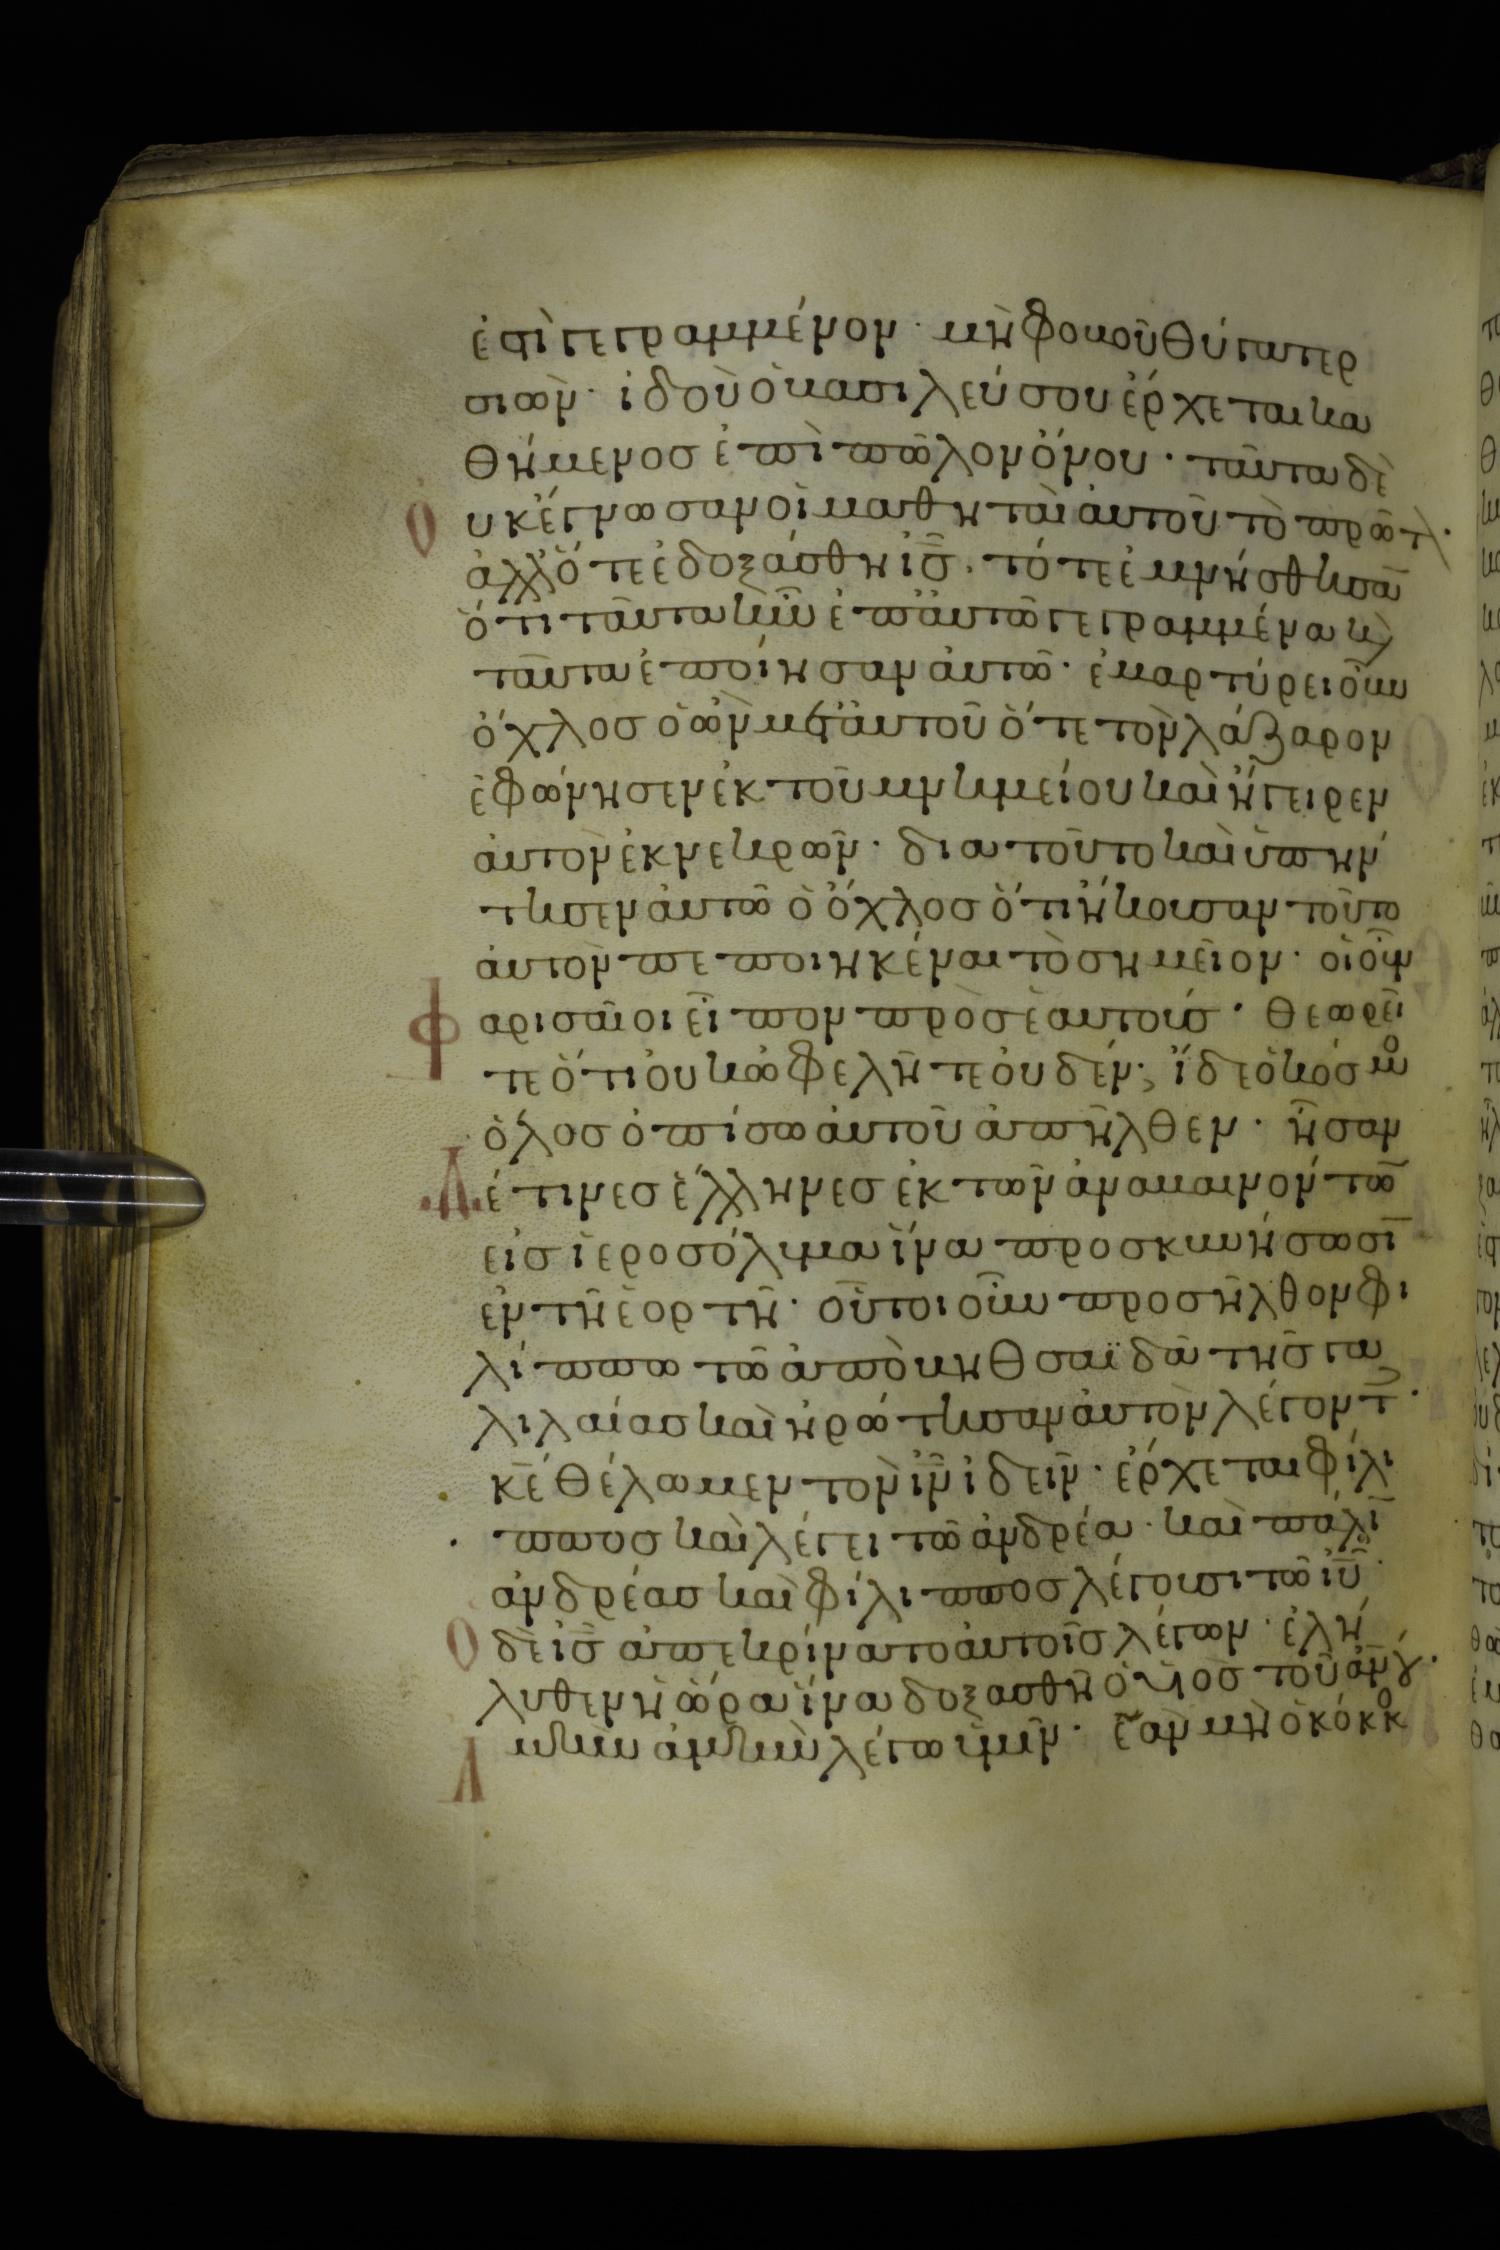 ἐστὶ γεγραμμένον· μὴ φοβοῦ θύγατερ
σιών· ἰδοὺ ὁ βασιλεύς σου ἔρχεται κα
θήμενος ἐπὶ πῶλον ὄνου· ταῦτα δὲ
Οὐκ ἔγνωσαν οἱ μαθηταὶ αὐτοῦ τὸ πρῶτ
ἀλλ' ὅτε ἐδοξάσθη ὁ ις̅· τότε ἐμνήσθησα̅
ὅτι ταῦτα ἦν ἐπ' αὐτῶ γεγραμμένα κ̀
ταῦτα ἐποίησαν αὐτῶ· ἐμαρτύρει οὖν
ὄχλος ὁ ὢν μετ' αὐτοῦ ὅτε τὸν λάζαρον
ἐφώνησεν ἐκ τοῦ μνημείου καὶ ἤγειρεν
αὐτὸν ἐκ νεκρῶν· δια τοῦτο καὶ ὑπήν
τησεν αὐτῶ ὁ ὄχλος ὅτι ἤκουσαν τοῦτο
αὐτὸν πεποιηκέναι τὸ σημεῖον· οἱ οὖν
Φαρισαῖοι εἶπον πρὸς ἑαυτούς· θεωρεῖ
τε ὅτι οὐκ ὠφελῆτε οὐδέν· ἴδε ὁ κόσμο
ὅλος ὀπίσω αὐτοῦ ἀπῆλθεν· ἦσαν
Δέ τινες ἕλληνες ἐκ τῶν ἀναβαινόντω̅
εἰς ἱεροσόλυμα ἵνα προσκυνήσωσι̅
ἐν τῆ ἑορτῆ· οὗτοι οὖν προσῆλθον φι
λίππω τῶ ἀπὸ βηθσαϊδὰ τῆς γα
λιλαίας καὶ ἠρώτησαν αὐτὸν λέγοντ
κε̅ θέλωμεν τὸν ιν̅ ἰδεῖν· ἔρχεται φίλι
ππος καὶ λέγει τῶ ἀνδρέα· καὶ πάλι̅
ἀνδρέας καὶ φίλιππος λέγουσι τῶ ιυ̅
Ὁ δὲ ις̅ ἀπεκρίνατο αὐτοῖς λέγων· ἐλή
λυθεν ἡ ὥρα ἵνα δοξασθῆ ὁ υἱὸς τοῦ αν̅ου
Ἀμὴν ἀμὴν λέγω ὑμῖν· ἐὰν μὴ ὁ κόκκο